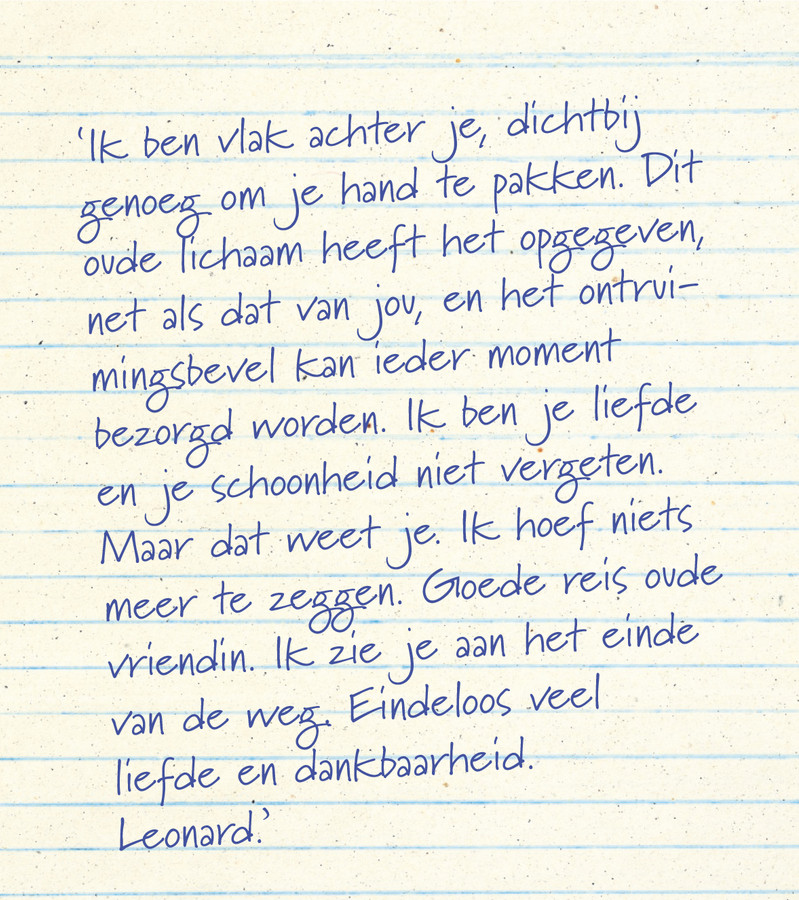 'Ik ben vlak achter je, dichtbij
genoeg om je hand te pakken. Dit
oude lichaam heeft het opgegeven,
net als dat van jou, en het ontrui-
mingsbevel kan ieder moment
bezorgd worden. Ik ben je liefde
en je schoonheid niet vergeten.
Maar dat weet je. Ik hoef niets
meer te zeggen. Goede reis oude
vriendin. Ik zie je aan het einde
van de weg. Eindeloos veel
liefde en dankbaarheid.
Leonard.'